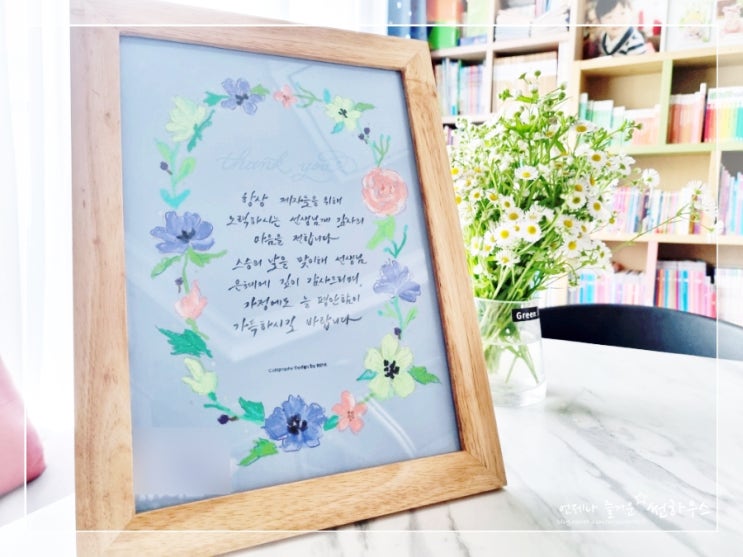 thank you
항상 제자들을 위해
노력하시는 선생님께 감사의
마음을 전합니다
스승의 날을 맞이해 선생님
은혜에 깊이 감사드리며,
가정에도 늘 평안함이
가득하시길 바랍니다
Green
언제나 즐거운 썬하우스